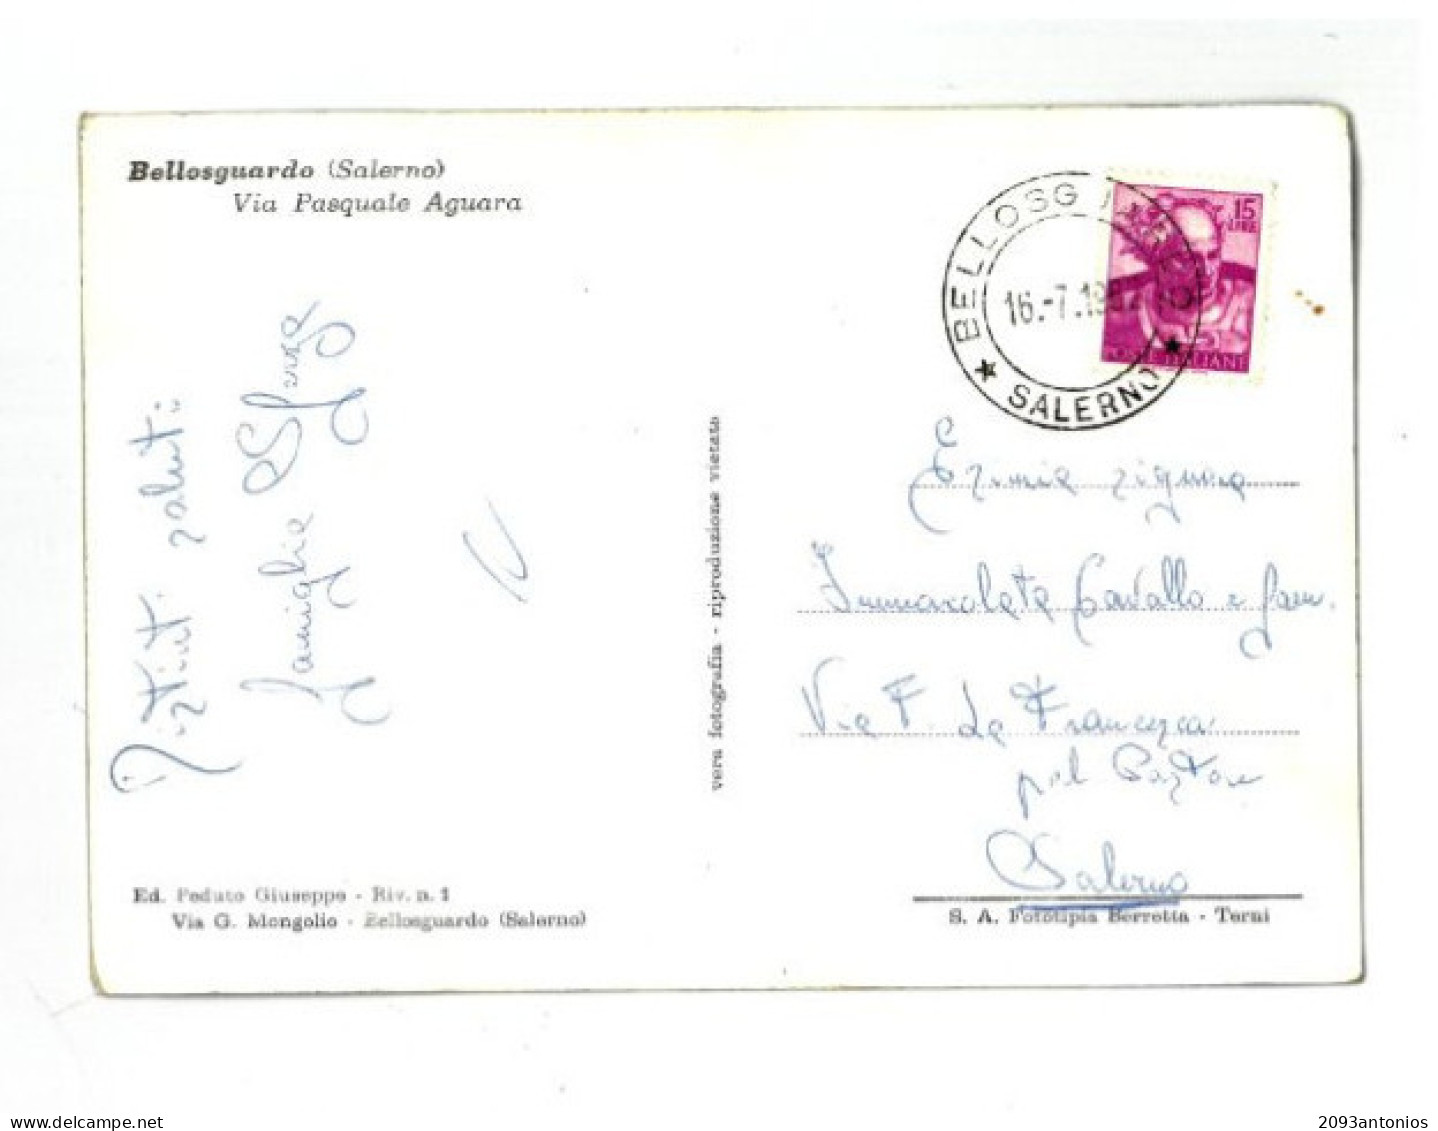 Bellosguardo (Salerno)
Via Pasquale Aguara
BELLOSG ARDO
16.-7.1962
SALERNO
15
LIRE
POSTE ITALIANE
Distinti saluti
Famiglia
vera fotografia - riproduzione vietata
signora
Immacolata Cavallo e fam.
Via F. La Francesca
Salerno
Ed. Peduto Giuseppe - Riv. n. 1
Via G. Mongolio - Bellosguardo (Salerno)
S. A. Fototipia Berretta - Terni
delcampe.net
2093antonios